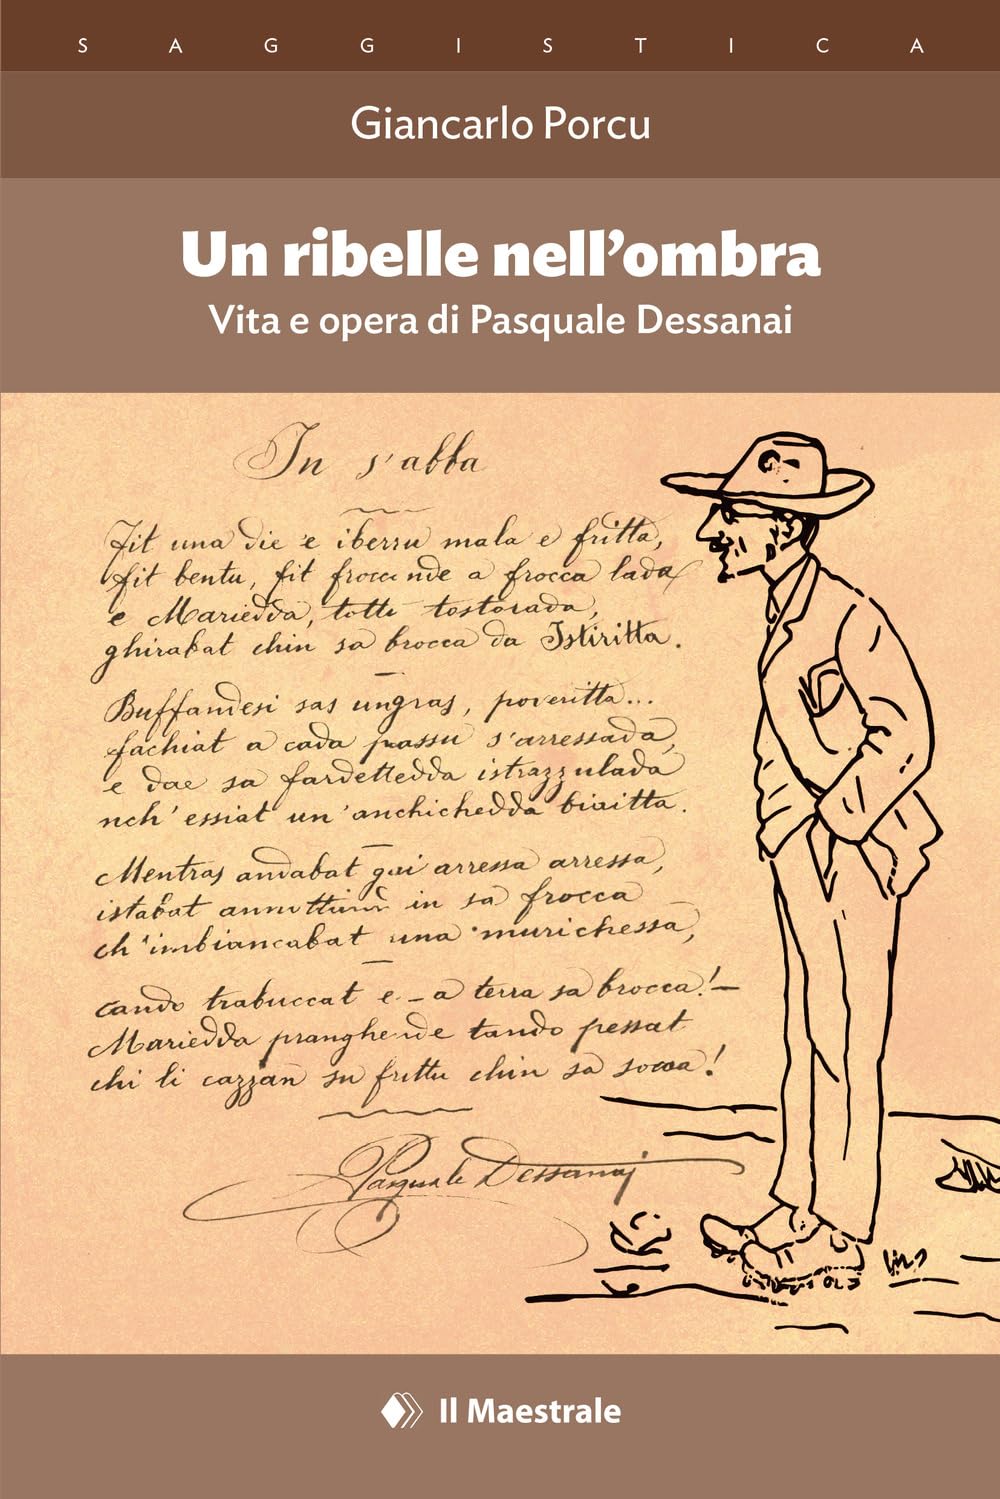 SAGGISTICA
Giancarlo Porcu
Un ribelle nell'ombra
Vita e opera di Pasquale Dessanai
In s'abba
Fit una die 'e iberru mala e fritta,
fit bentu, fit frocande a frocca lada
e Mariedda, totta tostorada,
ghirabat chin sa brocca da Istiritta.
Buffandesi sas ungras, poveritta...
fachiat a cada passu s'arressada,
e dae sa fardettedda istrazzulada
nch'essiat un'anchichedda biaitta.
Mentras andabat gai arressa arressa,
istabat annottande in sa frocca
ch'imbiancabat una murichessa,
cando trabuccat e – a terra sa brocca! –
Mariedda pranghende tando pessat
chi li cazzan su frittu chin sa socca!
Pasquale Dessanaj
Il Maestrale